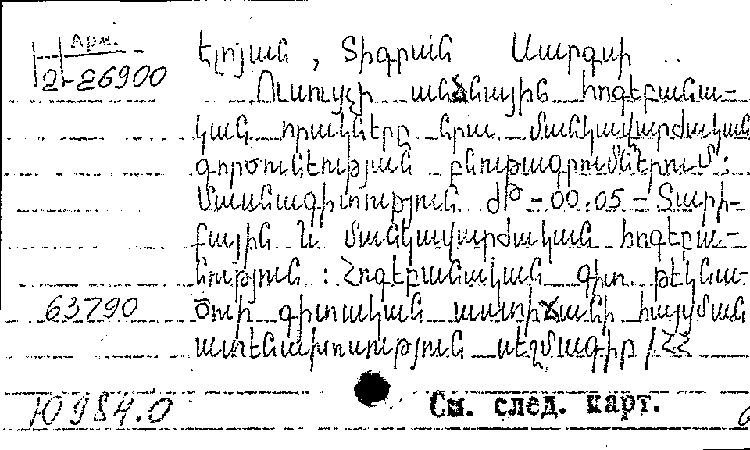 Арм.
Էլոյան, Տիգրան Սարգսի
2-26900
Ուսուցչի անձնային հոգեբանա-
կան որակները նրա մանկավարժական
գործունեության բնութագրումներում:
Մասնագիտություն ԺԹ-00.05 - Տարի-
քային և մանկավարժական հոգեբա-
նություն: Հոգեբանական գիտ. թեկնա-
63790 ծուի գիտական աստիճանի հայցման
ատենախոսություն սեղմագիր /ՀՀ
10984.0 См. след. карт. 6